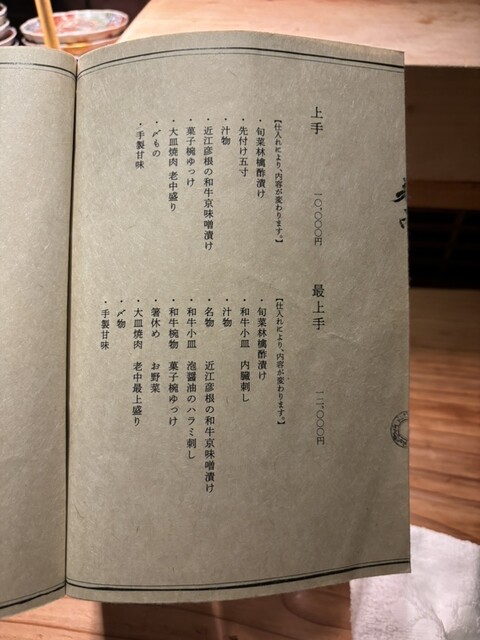 上手 一〇、〇〇〇円
【仕入れにより、内容が変わります。】
・旬菜林檎酢漬け
・先付け五寸
・汁物
・近江彦根の和牛京味噌漬け
・菓子椀ゆっけ
・大皿焼肉 老中盛り
・〆もの
・手製甘味
最上手 一二、〇〇〇円
【仕入れにより、内容が変わります。】
・旬菜林檎酢漬け
・和牛小皿 内臓刺し
・汁物
・名物 近江彦根の和牛京味噌漬け
・和牛小皿 泡醤油のハラミ刺し
・和牛椀物 菓子椀ゆっけ
・箸休め お野菜
・大皿焼肉 老中最上盛り
・〆物
・手製甘味